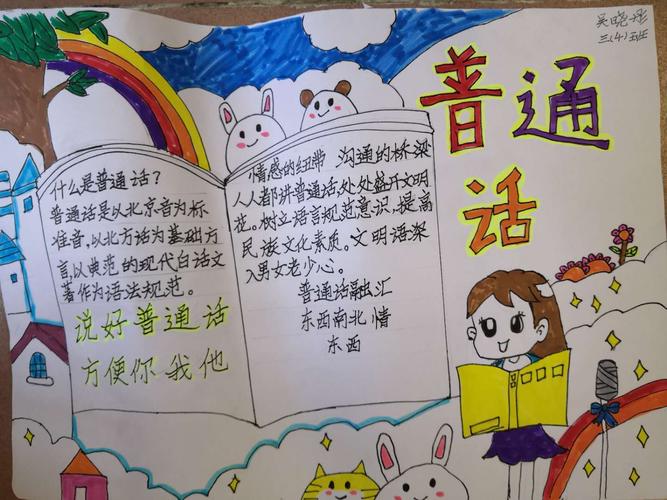 吴晓彤
三(4)班
普通话
什么是普通话?
普通话是以北京音为标
准音,以北方话为基础方
言,以典范的现代白话文
著作为语法规范。
说好普通话
方便你我他
情感的纽带 沟通的桥梁
人人都讲普通话,处处盛开文明
花。树立语言规范意识,提高
民族文化素质。文明语深
入男女老少心。
普通话融汇
东西南北情
东西